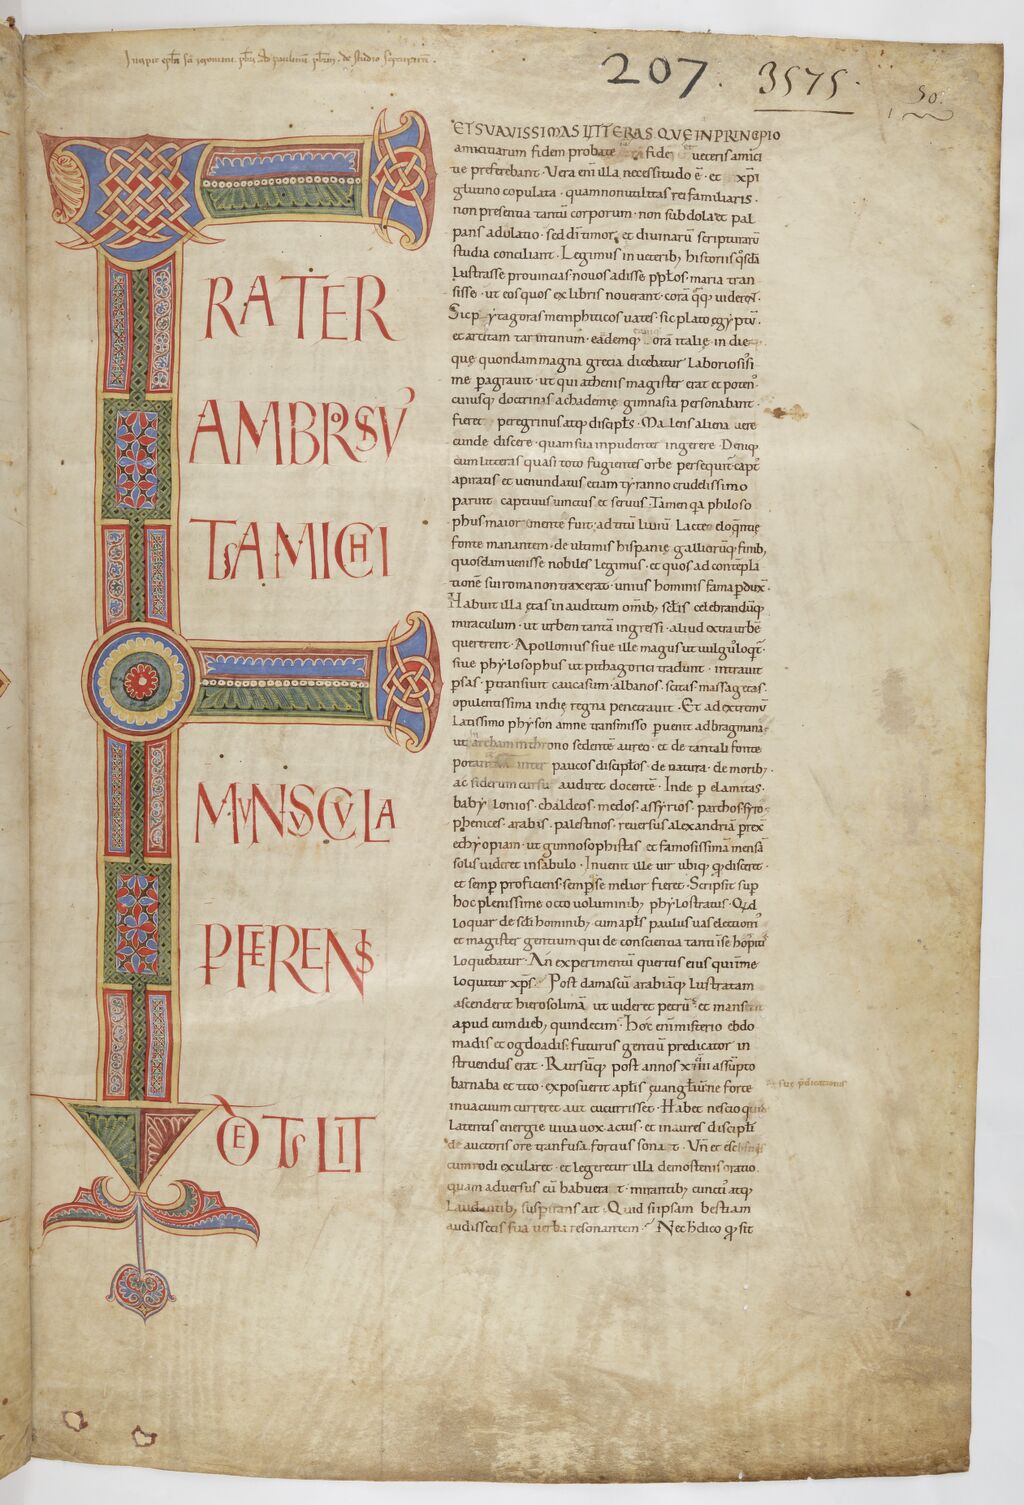 Incipit epła sči ieronimi pbri ad paulinum pbrm. de studio scripturarū.
207. 3575.
50.
FRATER
AMBROSIVS
TVA MICHI
MVNVSCVLA
PFERENS
DETVLIT
ET SVAVISSIMAS LITTERAS QVE IN PRINCIPIO
amicitiarum fidem probate fidei et ueteris amici
tie preferebant. Vera eni illa necessitudo ē. et xp̄i
glutino copulata. quam non utilitas rei familiaris.
non presentia tantū corporum. non subdola et pal
pans adulatio. sed dī timor. et diuinarū scripturarū
studia conciliant. Legimus in ueterib; historiis qsdā
lustrasse prouincias nouos adisse pplos. maria tran
sisse. ut eos quos ex libris nouerant. corā qq; uiderent.
Sic pytagoras memphiticos uates. sic plato egyptū.
et architam tarentinum. eademq; orā italie. in die
que quondam magna grecia dicebatur Laboriosisi
me pagrauit. ut qui athenis magister erat et potens.
cuiusq; doctrinas achademie gimnasia personabant.
fieret peregrinus atq; discipls. Malens aliena uere
cunde discere. quam sua inpudenter ingerere. Deniq;
cum litteras quasi toto fugientes orbe persequit capt'
apiratis et uenundatus etiam tyranno crudelissimo
paruit captiuus uinctus et seruus. Tamen qa philoso
phus maior emente fuit. ad titū liuiū Lacteo eloqntie
fonte manantem. de ultimis hispanie galliarūq; finib;
quosdam uenisse nobiles legimus. et quos ad contēpla
tionē sui roma non traxerat. unius hominis fama pduxit.
Habuit illa etas in auditum omīb; sclis celebrandūq;
miraculum. ut urbem tantā ingressi. aliud extra urbē
quererent. Apollonius siue ille magus ut uulgus loqt'.
siue phylosophus ut pithagorici tradunt. intrauit
psas. ptransiuit caucasum. albanos. scitas. massagetas.
opulentissima indie regna penetrauit. Et ad extremū
latissimo physon amne transmisso puenit ad bragmanas.
ut hiarcham in throno sedentē aureo. et de tantali fonte
potantem inter paucos disciplos. de natura. de morib;.
ac siderum cursu audiret docentē. Inde p elamitas.
babylonios. chaldeos. medos. assyrios. parthos. syros
phenices. arabis. palestinos. reuersus alexandriā prexit
ethyopiam. ut gimnosophistas et famosissimā mensā
solis uideret in sabulo. Inuenit ille uir ubiq; q disceret.
et semp proficiens. semp se melior fieret. Scripsit sup
hoc plenissime octo uoluminib; phylostratus. Qid
loquar de sčli hominib; cum apls paulus uas electionis
et magister gentium qui de conscientia tanti in se hospitis
loquebatur. An experimentū queritis eius qui in me
loquitur xps. Post damascū arabiāq; lustratam
ascenderit hierosolimā ut uideret petrū. et manserit
apud eum dieb; quindecim. Hoc eni misterio ebdo
madis et ogdoadis. futurus gentiū predicator in
struendus erat. Rursūq; post annos xiiii assūpto
barnaba et tito. exposuerit aplis euangliū. ne forte
in uacuum curreret aut cucurrisset. Habet nescio quid
latentis energie uiua uox. actus. et in aures discipli
de auctoris ore tranfusa. fortius sonat. Vn et eschines
cum rodi exularet. et legeretur illa demostenis oratio
quam aduersus eū habuerat. mirantib; cunctis atq;
laudantib; suspirans ait. Quid si ipsam bestiam
audissetis sua uerba resonantem? Nec h dico q sit
sue p̄dicationis